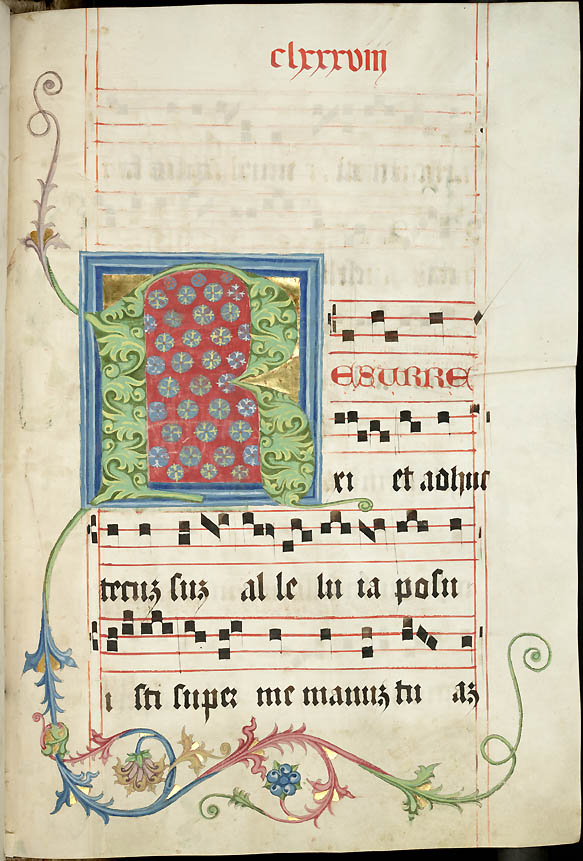 clxxxviii
RESURRE
xi et adhuc
tecuz suz al le lu ia posu
i sti super me manuz tu az